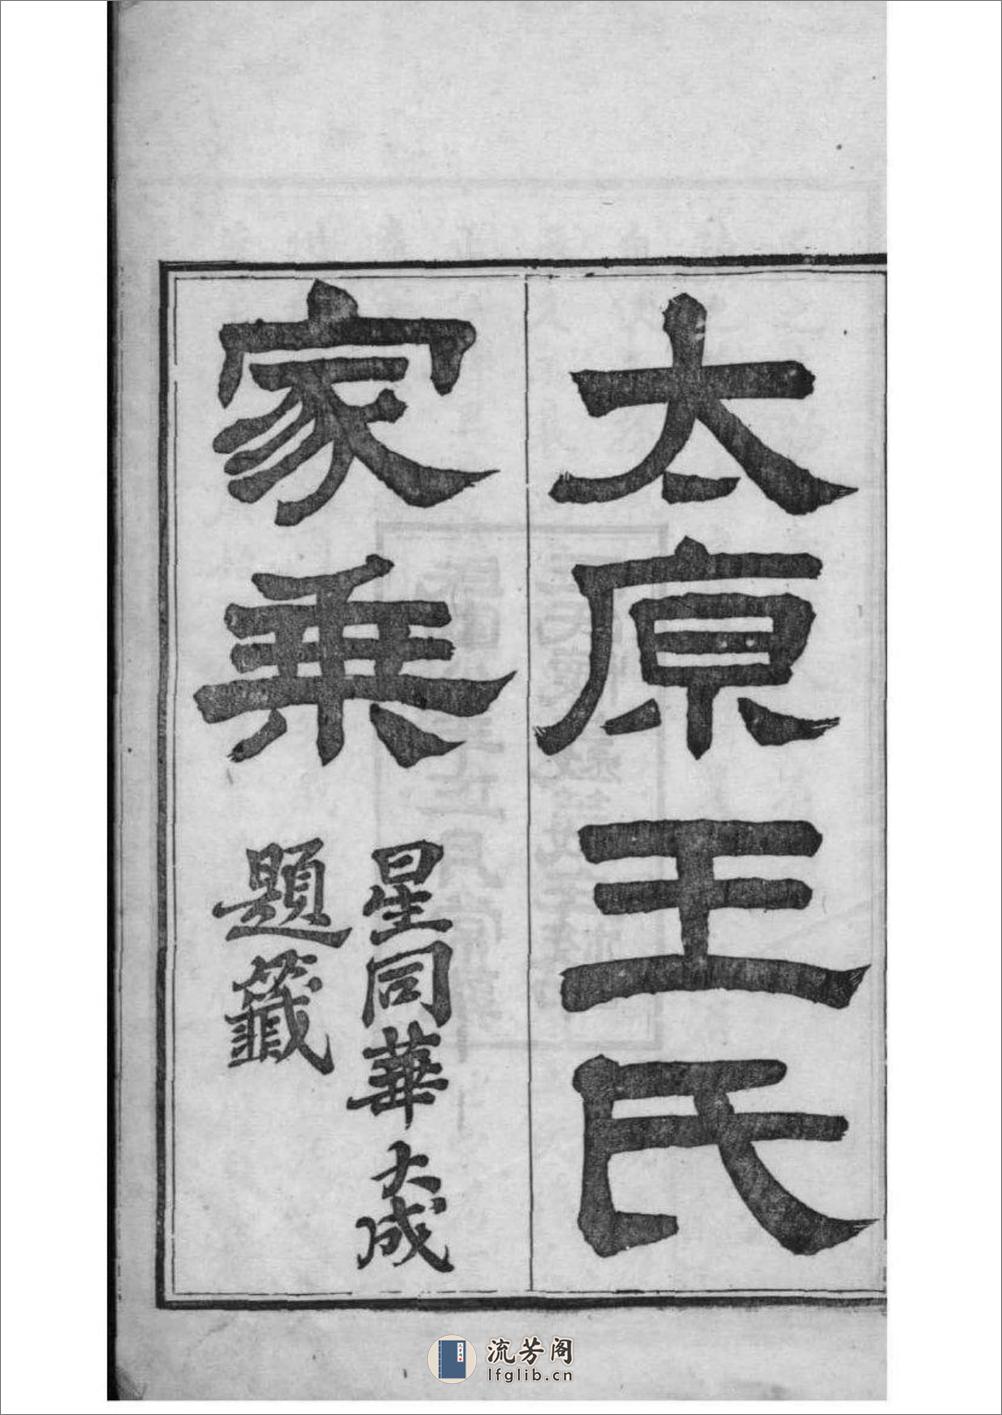 太原王氏
家乘
星同華大成
題籤
流芳阁
lfglib.cn